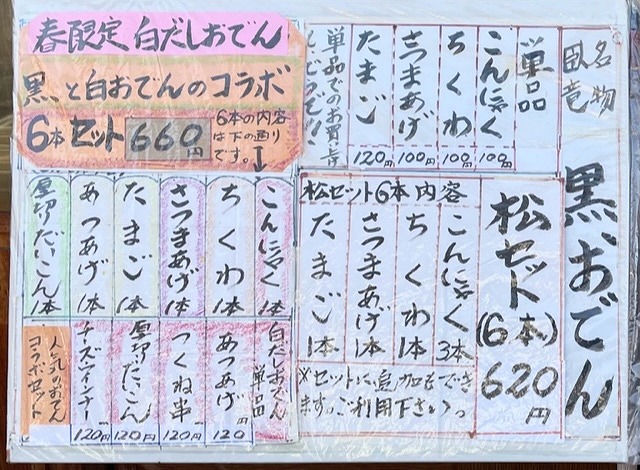 名物
臥竜
黒、おでん
単品
こんにゃく 100円
ちくわ 100円
さつまあげ 100円
たまご 120円
単品でのお買い上げ
松セット(6本)
620円
松セット6本内容
こんにゃく 3本
ちくわ 1本
さつまあげ 1本
たまご 1本
※セットに追加をでき
ます。ご利用下さいっ
春限定 白だしおでん
黒と白おでんのコラボ
6本セット 660円
6本の内容
は下の通り
です。↓
こんにゃく 1本
ちくわ 1本
さつまあげ 1本
たまご 1本
あつあげ 1本
厚切だいこん 1本
白だしおでん
単品
あつあげ 120円
つくね串 120円
厚切だいこん 120円
チーズウインナー 120円
人気のおでん
コラボセット